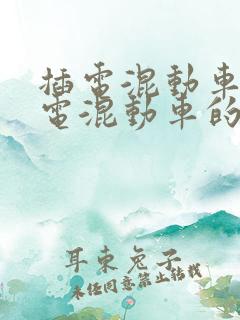 插電混動車
電混動車的
耳東兔子
未经同意禁止转载